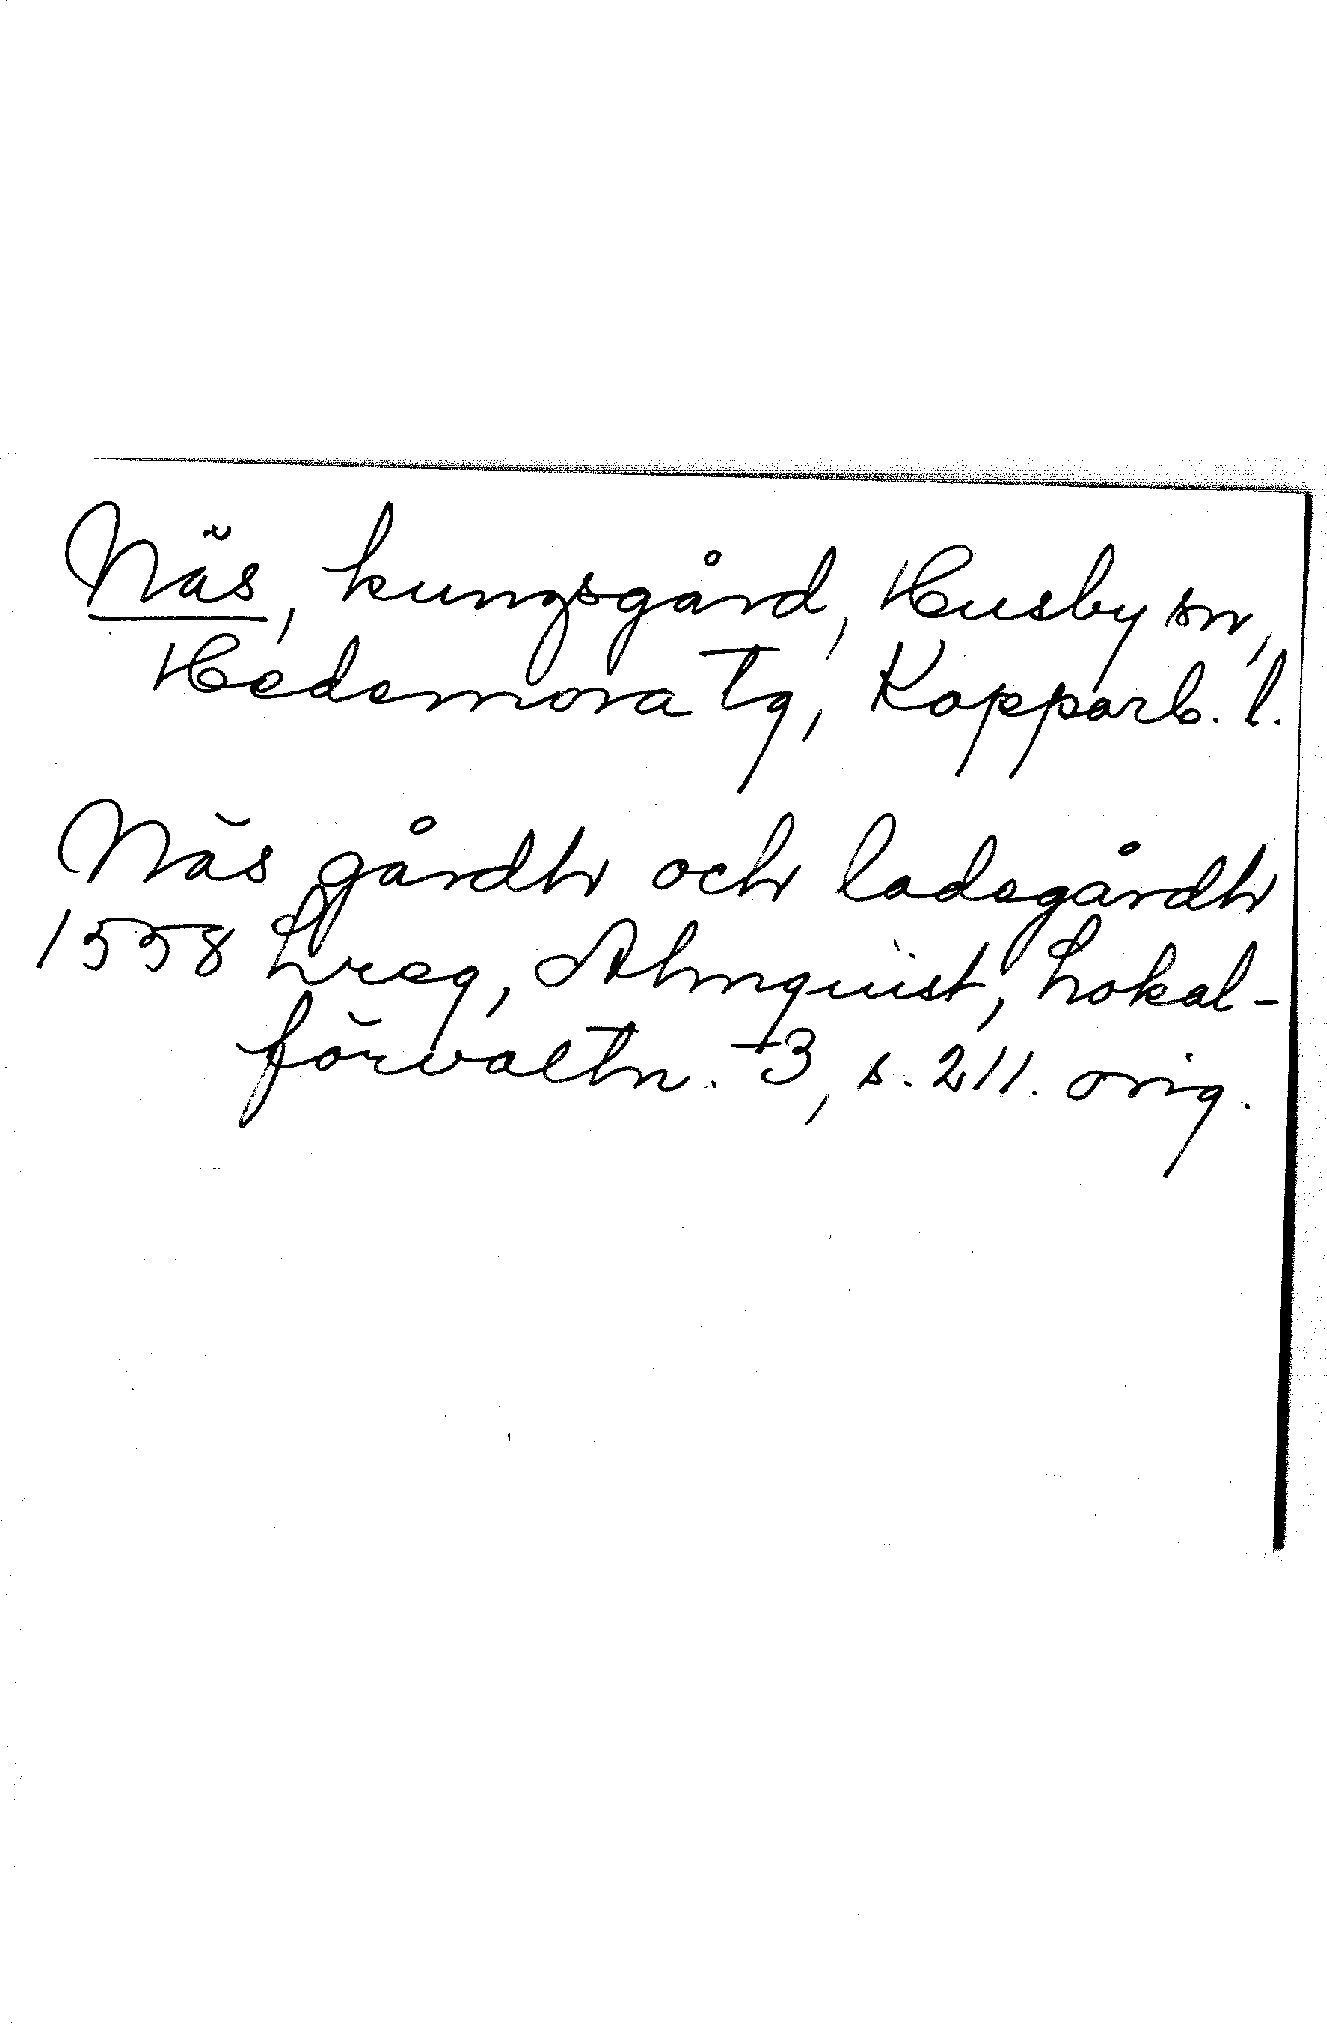 Näs, kungsgård, Husby sn,
Hedemora tg, Kopparb. l.
Näs gårdh och ladegårdh
1558 Lreg, Almquist, Lokal-
förvaltn. 3, s. 211. orig.